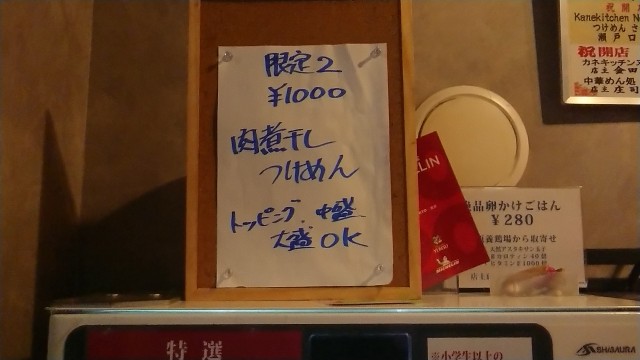 限定2
¥1000
肉煮干し
つけめん
トッピング、中盛
大盛OK
祝開
Kanekitchen N
つけめん
瀬戸口
祝開店
カネキッチン
店主 金田
中華めん処
店主 庄司
LIN
品卵かけごはん
¥280
養鶏場から取寄せ
特選
※小学生以上の
SHIBAURA